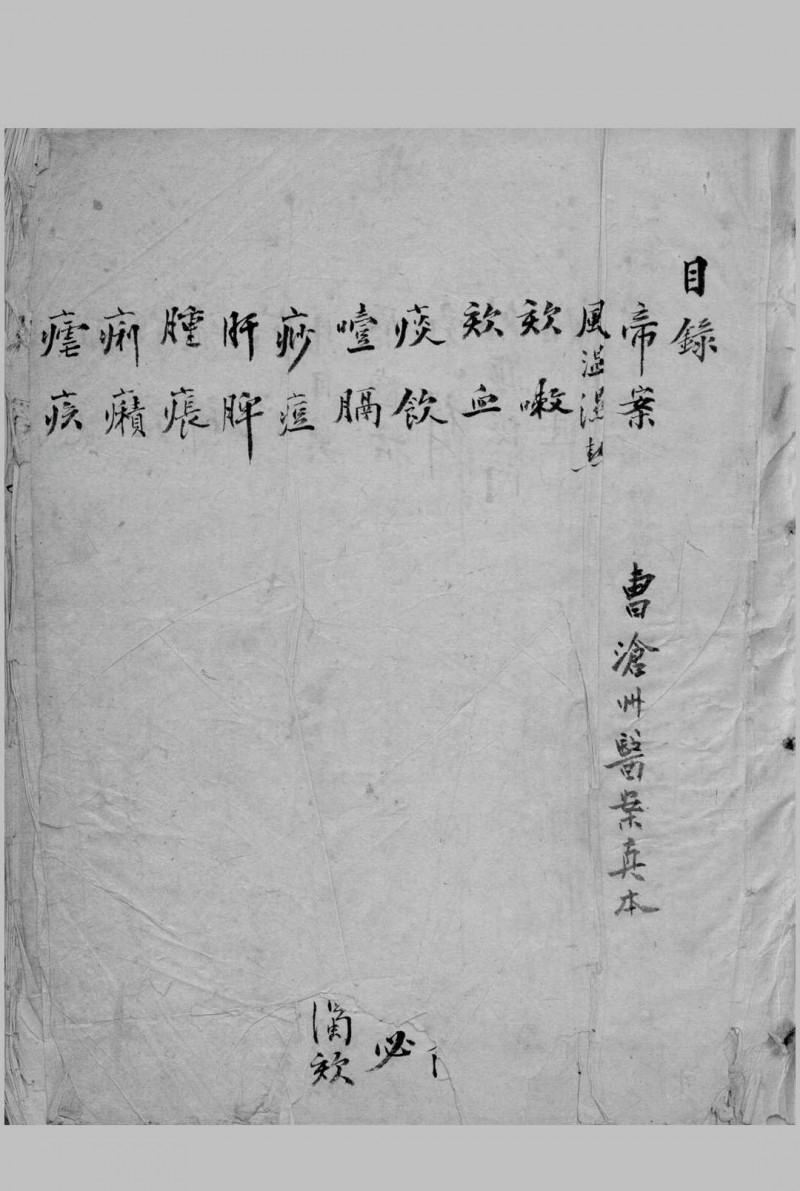 目錄
帝案
曹滄州醫案真本
風溫濕熱
欬嗽
欬血
痰飲
噎膈
痧痘
肝脾
腫脹
痢癪
瘧疾
必
欬